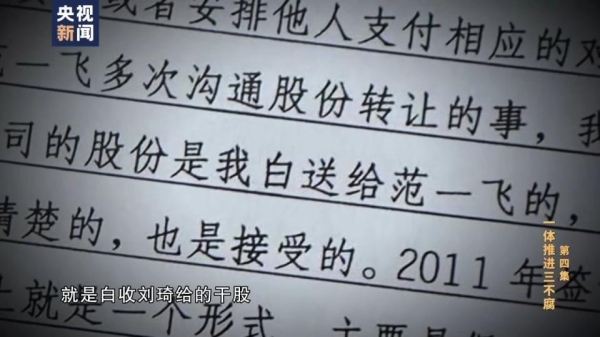 央视
新闻
或者安排他人支付相应的对
一飞多次沟通股份转让的事，我
司的股份是我白送给范一飞的，
清楚的，也是接受的。2011 年签
上就是一个形式，主要是
就是白收刘琦给的干股
第四集
一体推进三不腐